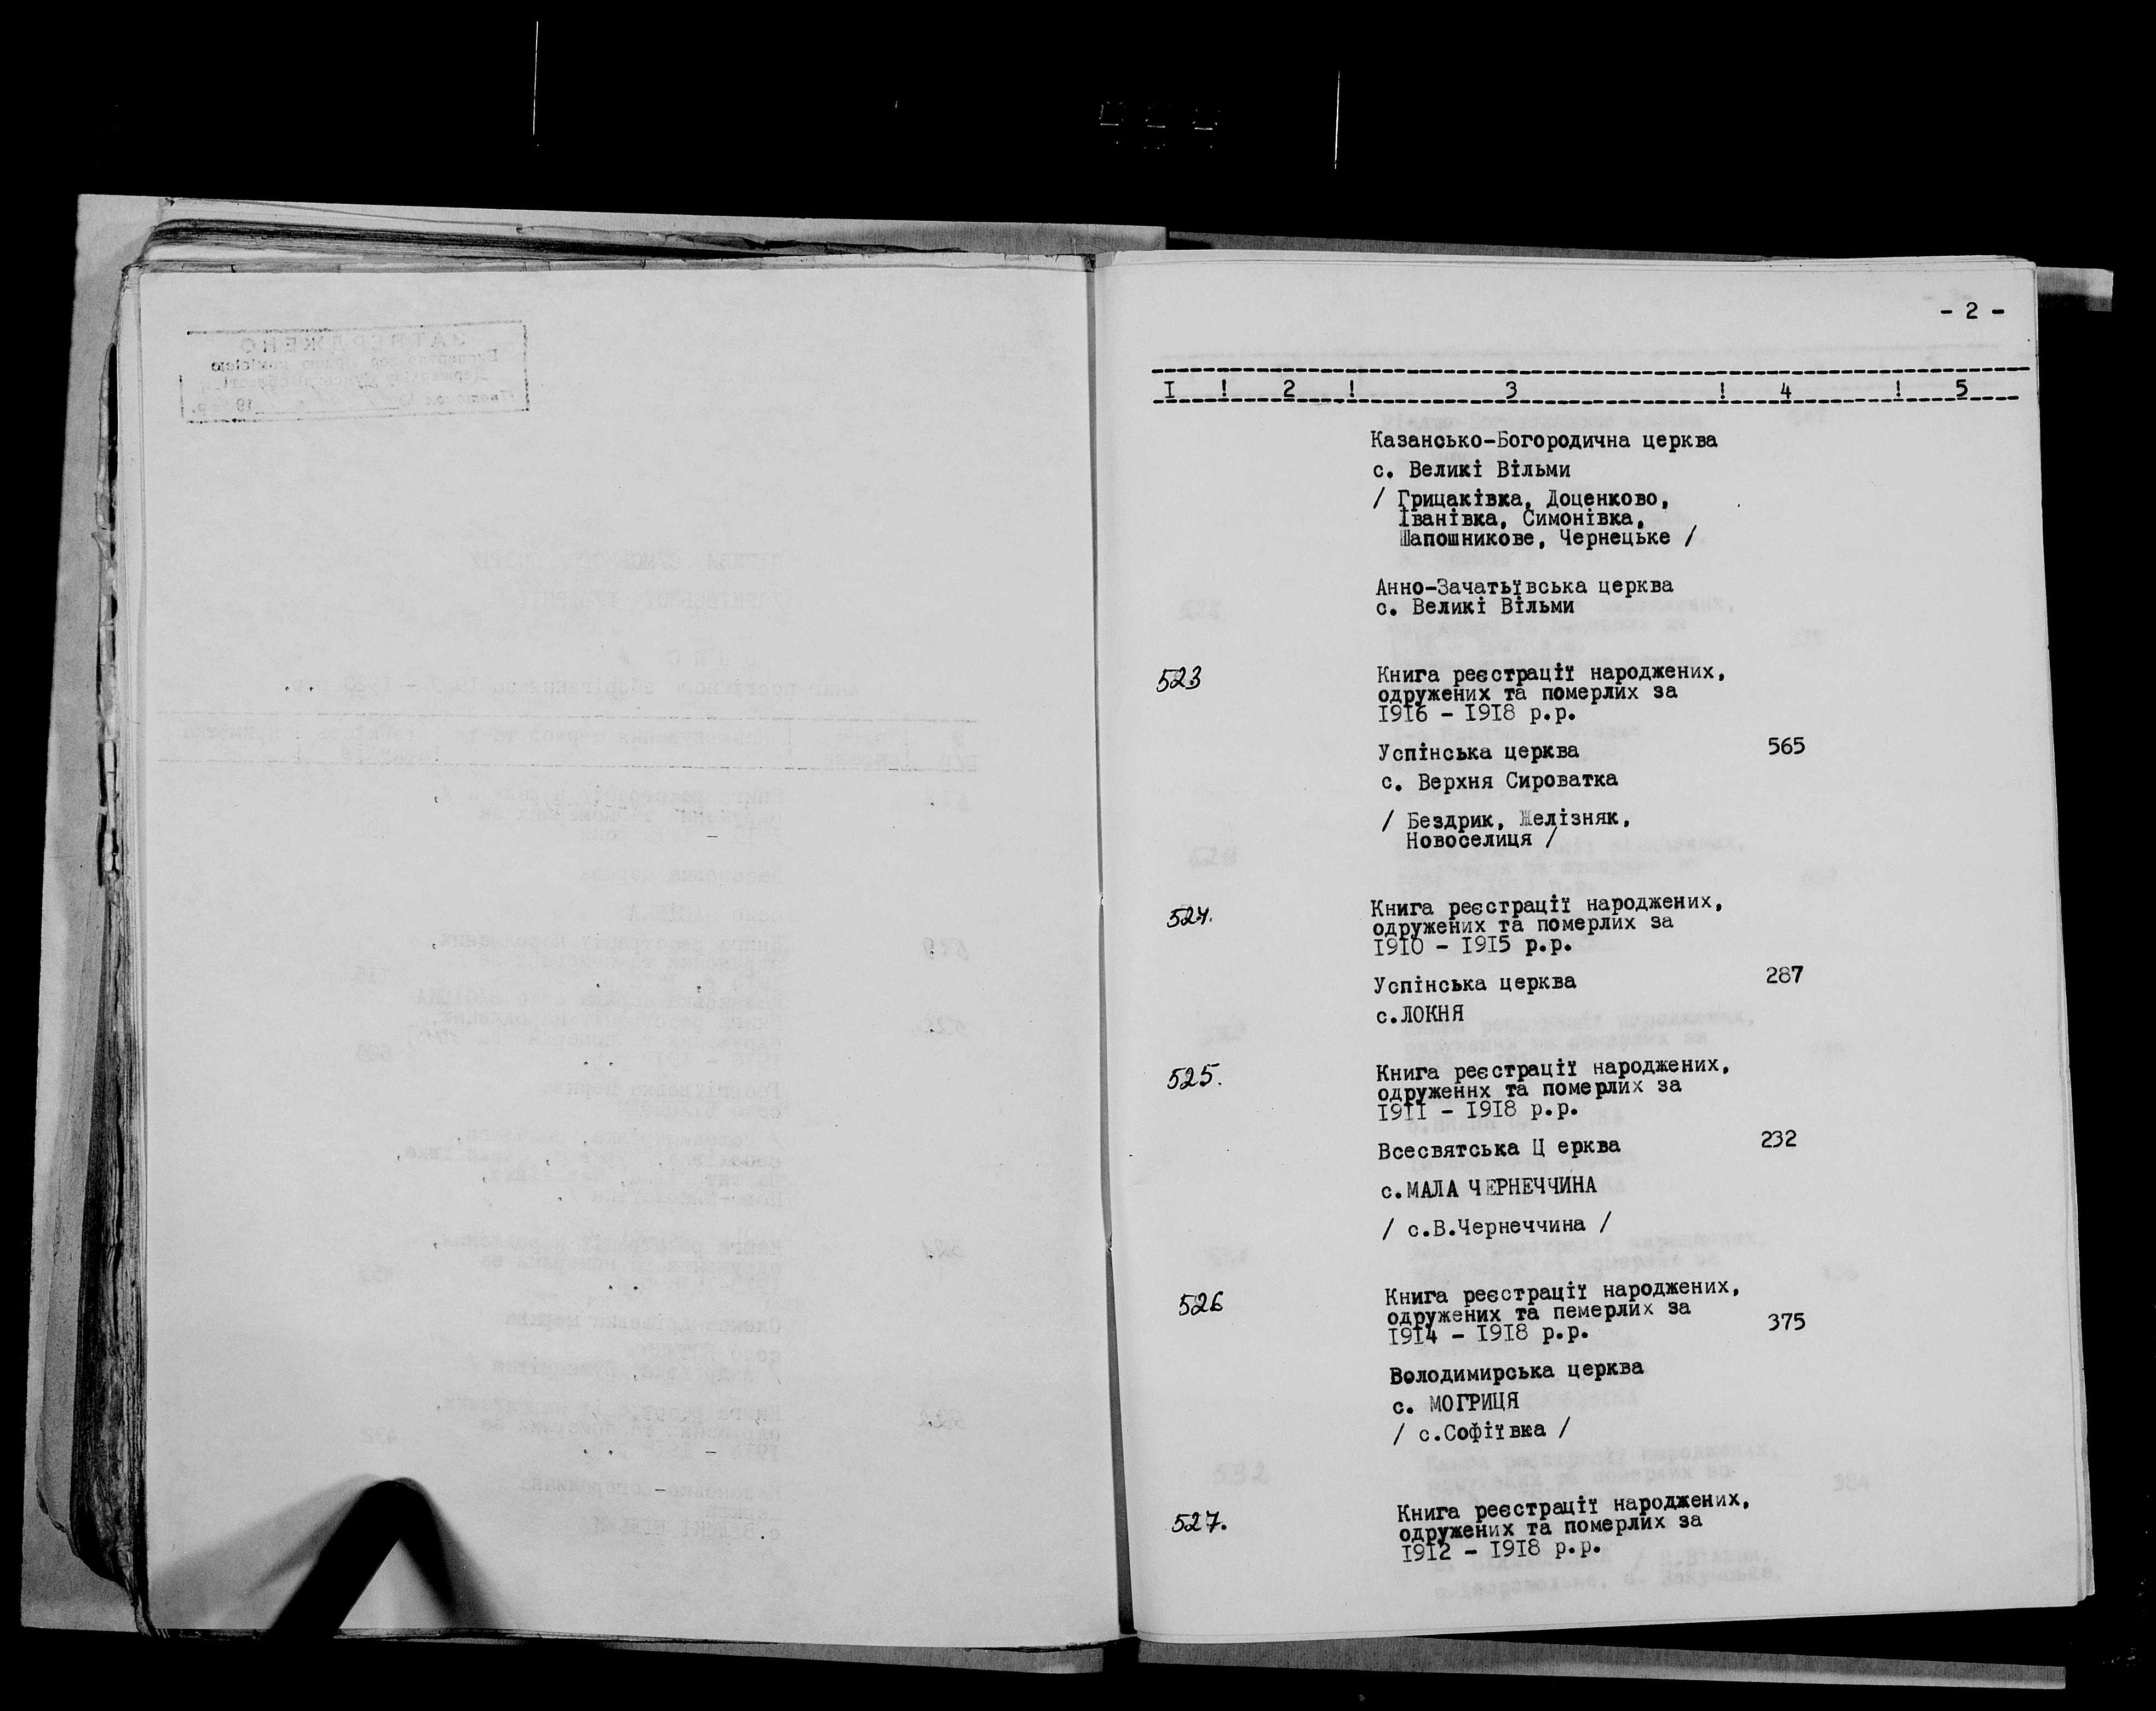 - 2 -
I ! 2 ! 3 ! 4 ! 5
Казансько-Богородична церква
с. Великі Вільми
/ Грицаківка, Доценково,
Іванівка, Симонівка,
Шапошникове, Чернецьке /
Анно-Зачатьївська церква
с. Великі Вільми
523 Книга реєстрації народжених,
одружених та померлих за
1916 - 1918 р.р.
Успінська церква 565
с. Верхня Сироватка
/ Бездрик, Желізняк,
Новоселиця /
524. Книга реєстрації народжених,
одружених та померлих за
1910 - 1915 р.р.
Успінська церква 287
с.ЛОКНЯ
525. Книга реєстрації народжених,
одруженнх та померлих за
1911 - 1918 р.р.
Всесвятська Ц ерква 232
с.МАЛА ЧЕРНЕЧЧИНА
/ с.В.Чернеччина /
526 Книга реєстрації народжених,
одружених та пемерлих за
1914 - 1918 р.р. 375
Володимирська церква
с. МОГРИЦЯ
/ с.Софіївка /
527. Книга реєстрації народжених,
одружених та померлих за
1912 - 1918 р.р.